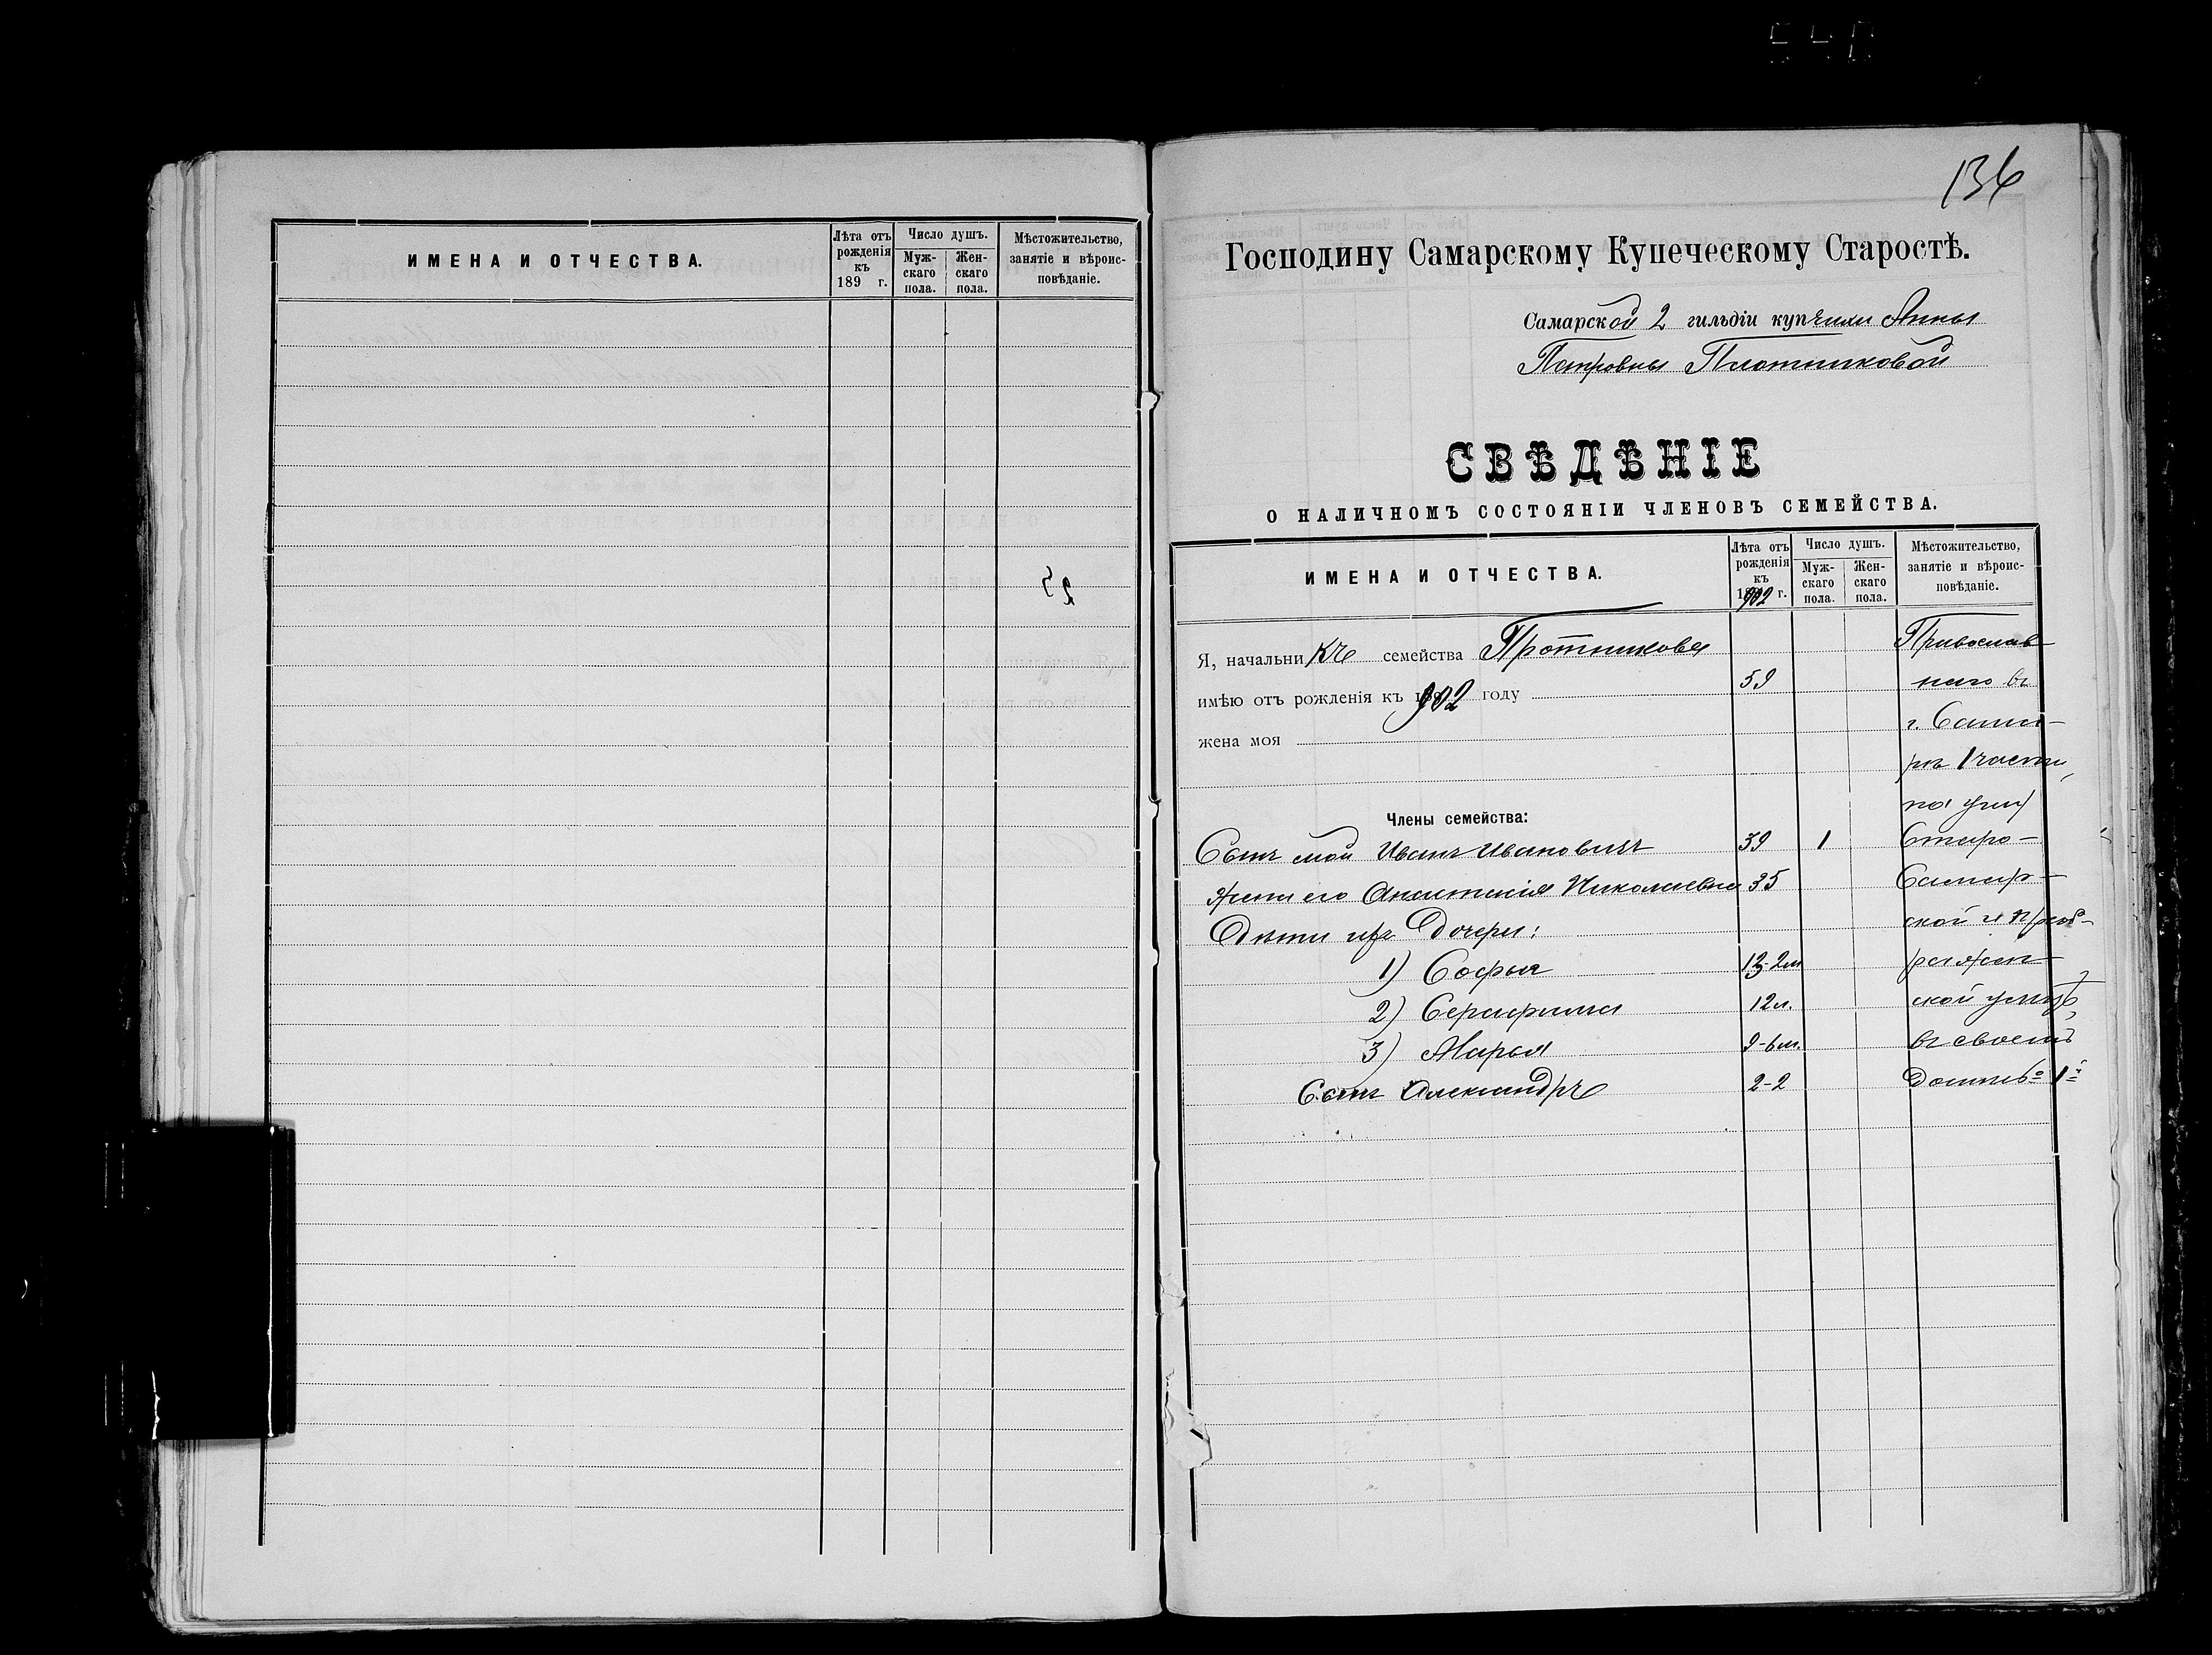 ИМЕНА И ОТЧЕСТВА.
Лѣта отъ рожденія къ 189 г.
Число душъ.
Мужскаго пола.
Женскаго пола.
Мѣстожительство, занятіе и вѣроисповѣданіе.
25
136
Господину Самарскому Купеческому Старостѣ.
Самарской 2 гильдіи купчихи Анны
Петровны Плотниковой
СВѢДѢНІЕ
О НАЛИЧНОМЪ СОСТОЯНІИ ЧЛЕНОВЪ СЕМЕЙСТВА.
ИМЕНА И ОТЧЕСТВА.
Лѣта отъ рожденія къ 1902 г.
Число душъ.
Муж-скаго пола.
Жен-скаго пола.
Мѣстожительство, занятіе и вѣроис-повѣданіе.
Я, начальникъ семейства Плотникова Православ-
имѣю отъ рожденія къ 1902 году 59 наго въ
жена моя г. Сама-
рѣ 1 части,
Члены семейства: на углу
Сынъ мой Иванъ Ивановичъ 39 1 Старо-
Жена его Анастасія Николаевна 35 Самар-
Дѣти ихъ Дочери: ской и Преоб-
1) Софья 13-2м ражен-
2) Серафима 12л. ской улицъ,
3) Марья 9-6м. въ своемъ
Сынъ Александръ 2-2